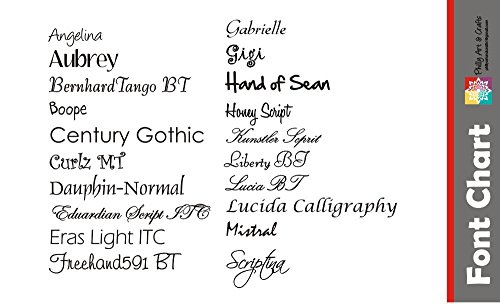 Angelina
Aubrey
BernhardTango BT
Boope
Century Gothic
Curlz MT
Dauphin-Normal
Eduardian Script ITC
Eras Light ITC
Freehand591 BT
Gabrielle
Gigi
Hand of Sean
Honey Script
Kunstler Script
Liberty BT
Lucia BT
Lucida Calligraphy
Mistral
Scriptina
Font Chart
Philly Art & Crafts